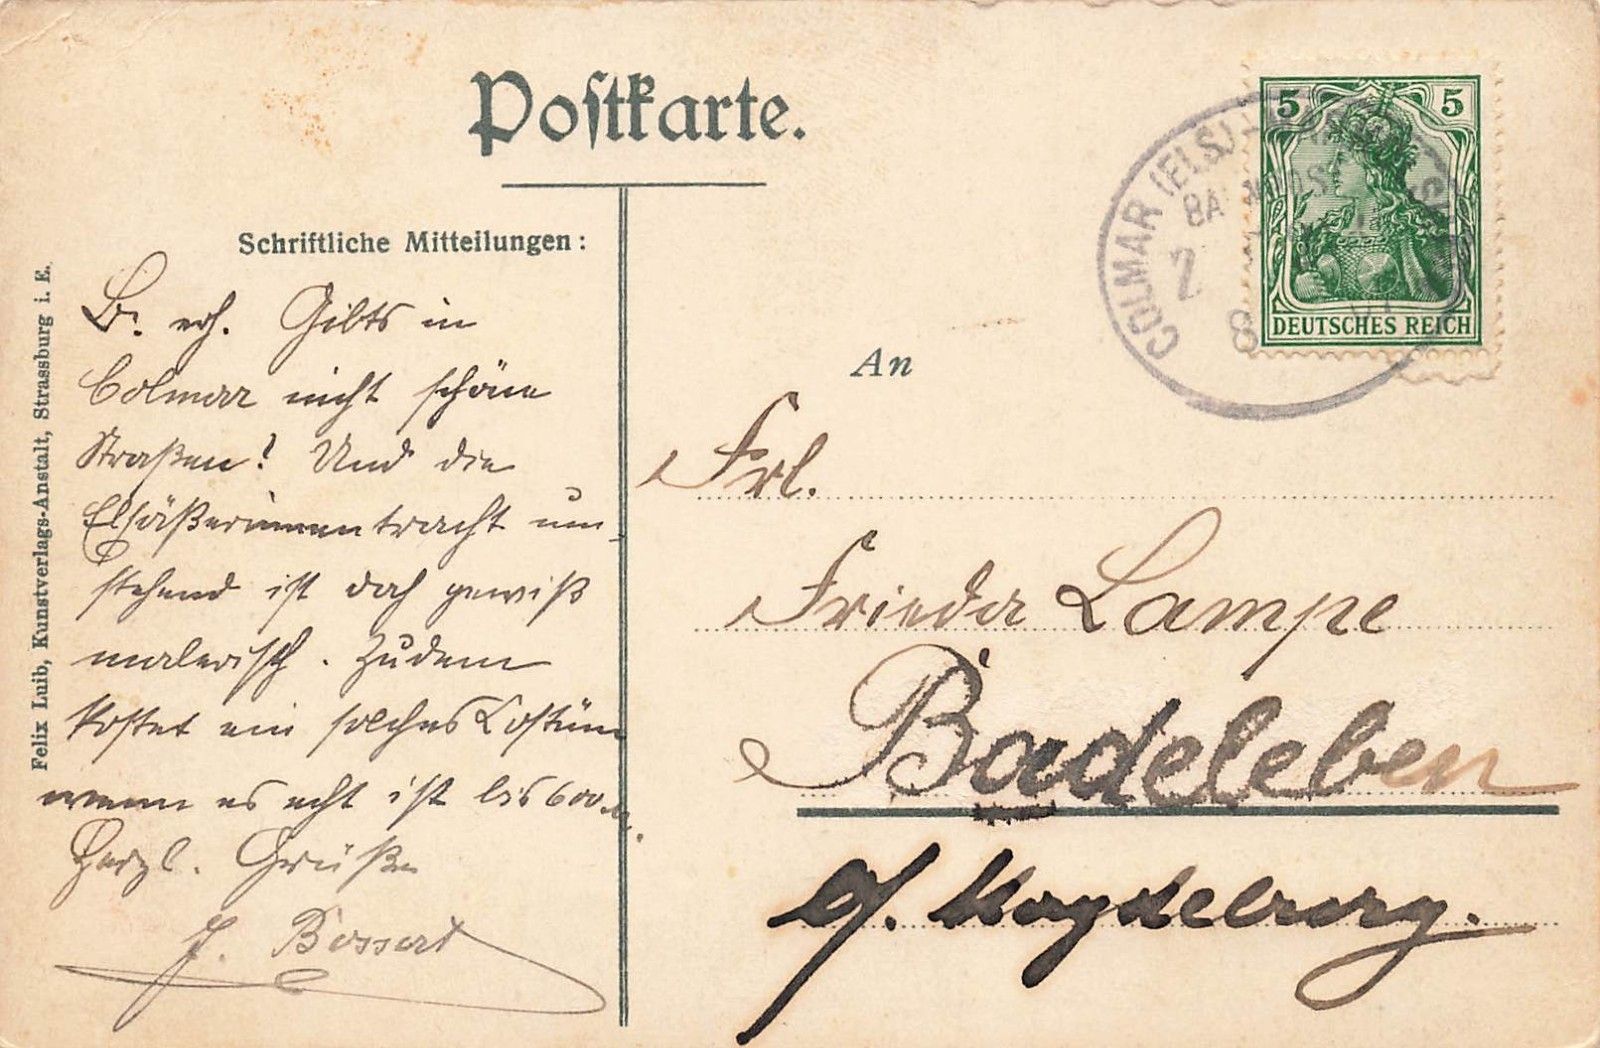 Postkarte.
Schriftliche Mitteilungen:
Felix Luib, Kunstverlags-Anstalt, Strassburg i. E.
Gibts in
Colmar nicht schöne
Straßen? Und die
Elsäßerinnentracht um-
stehend ist doch gewiß
malerisch. Zudem
kostet ein solches Costüm
wenn es echt ist bis 600 M.
Herzl. Grüße
J. Bossert
5 5
DEUTSCHES REICH
COLMAR (ELS)
BA
Z
8
An
Frl.
Frieda Lampe
Badeleben
b/. Magdeburg.